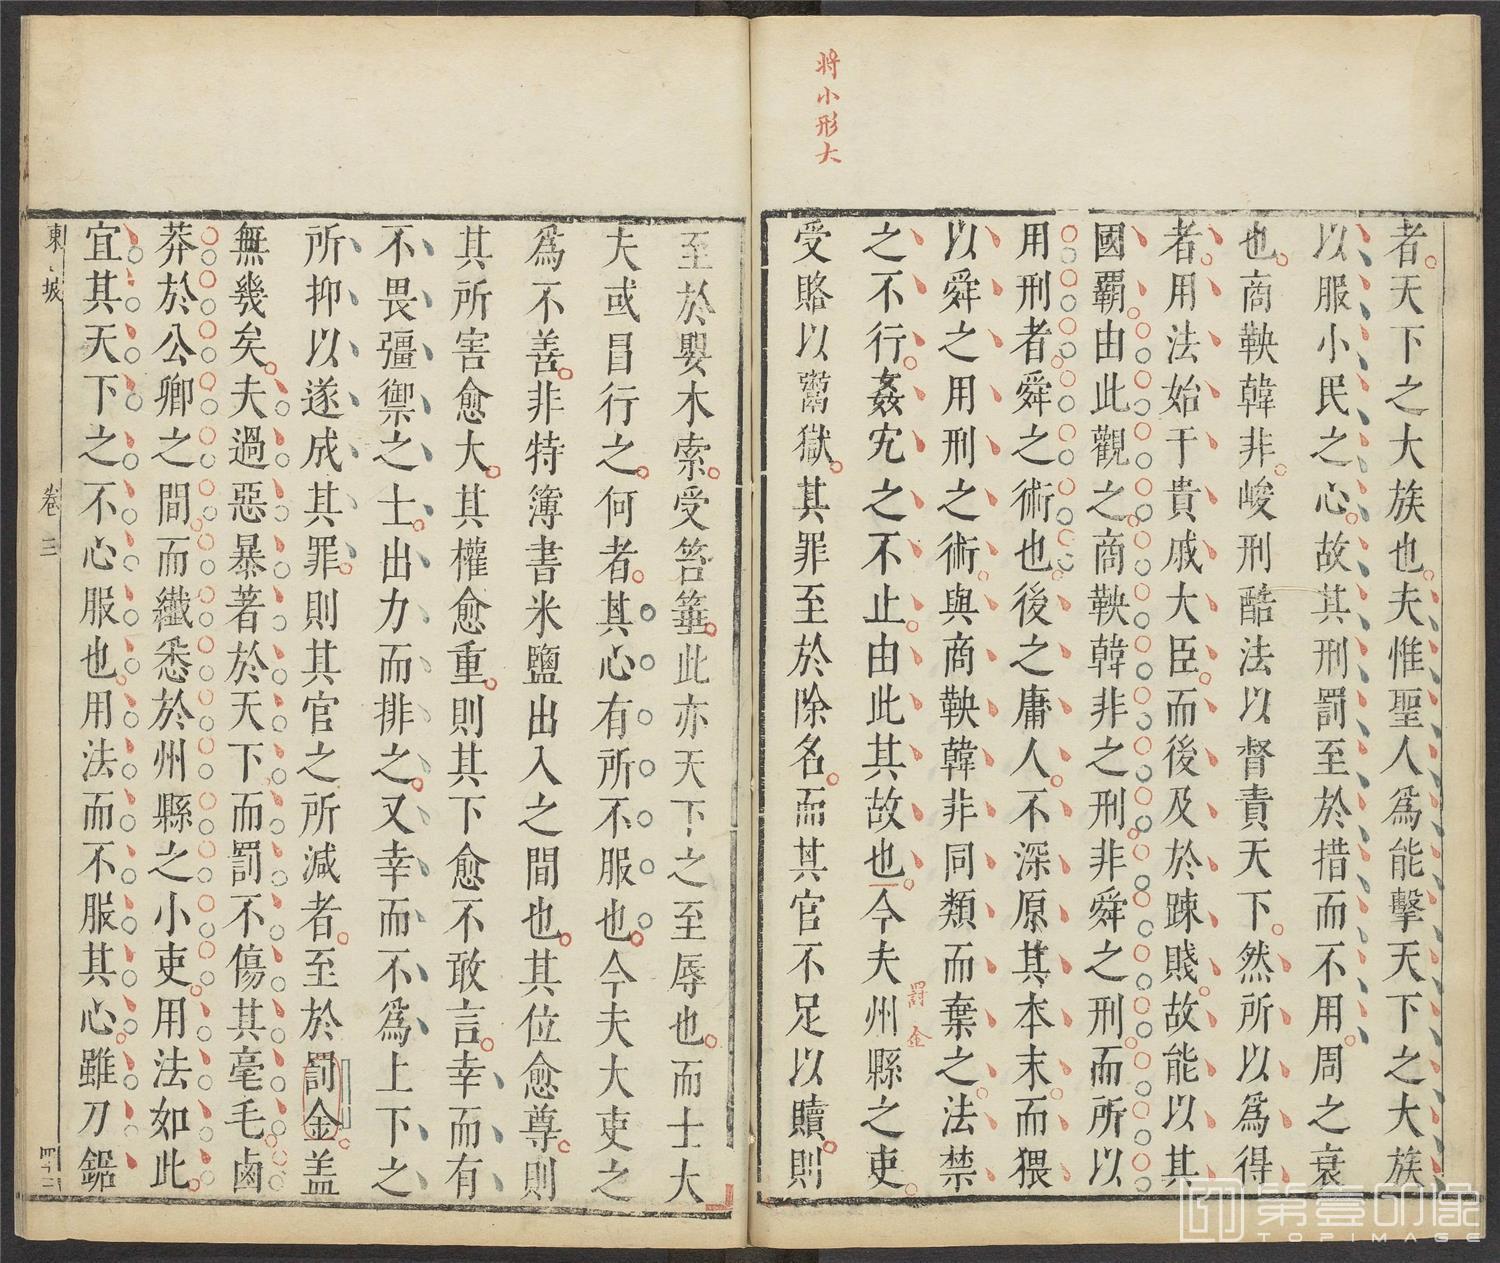 將小形大
者天下之大族也夫惟聖人爲能擊天下之大族
以服小民之心故其刑罰至於措而不用周之衰
也商鞅韓非峻刑酷法以督責天下然所以爲得
者用法始于貴戚大臣而後及於踈賤故能以其
國覇由此觀之商鞅韓非之刑非舜之刑而所以
用刑者舜之術也後之庸人不深原其本末而猥
以舜之用刑之術與商鞅韓非同類而棄之法禁
之不行姦宄之不止由此其故也今夫州縣之吏
罰金
受賂以鬻獄其罪至於除名而其官不足以贖則
至於嬰木索受笞箠此亦天下之至辱也而士大
夫或冒行之何者其心有所不服也今夫大吏之
爲不善非特簿書米鹽出入之間也其位愈尊則
其所害愈大其權愈重則其下愈不敢言幸而有
不畏彊禦之士出力而排之又幸而不爲上下之
所抑以遂成其罪則其官之所減者至於罰金盖
無幾矣夫過惡暴著於天下而罰不傷其毫毛鹵
莽於公卿之間而纖悉於州縣之小吏用法如此
宜其天下之不心服也用法而不服其心雖刀鋸
東坡 卷三
第壹印像
TOPIMAGE